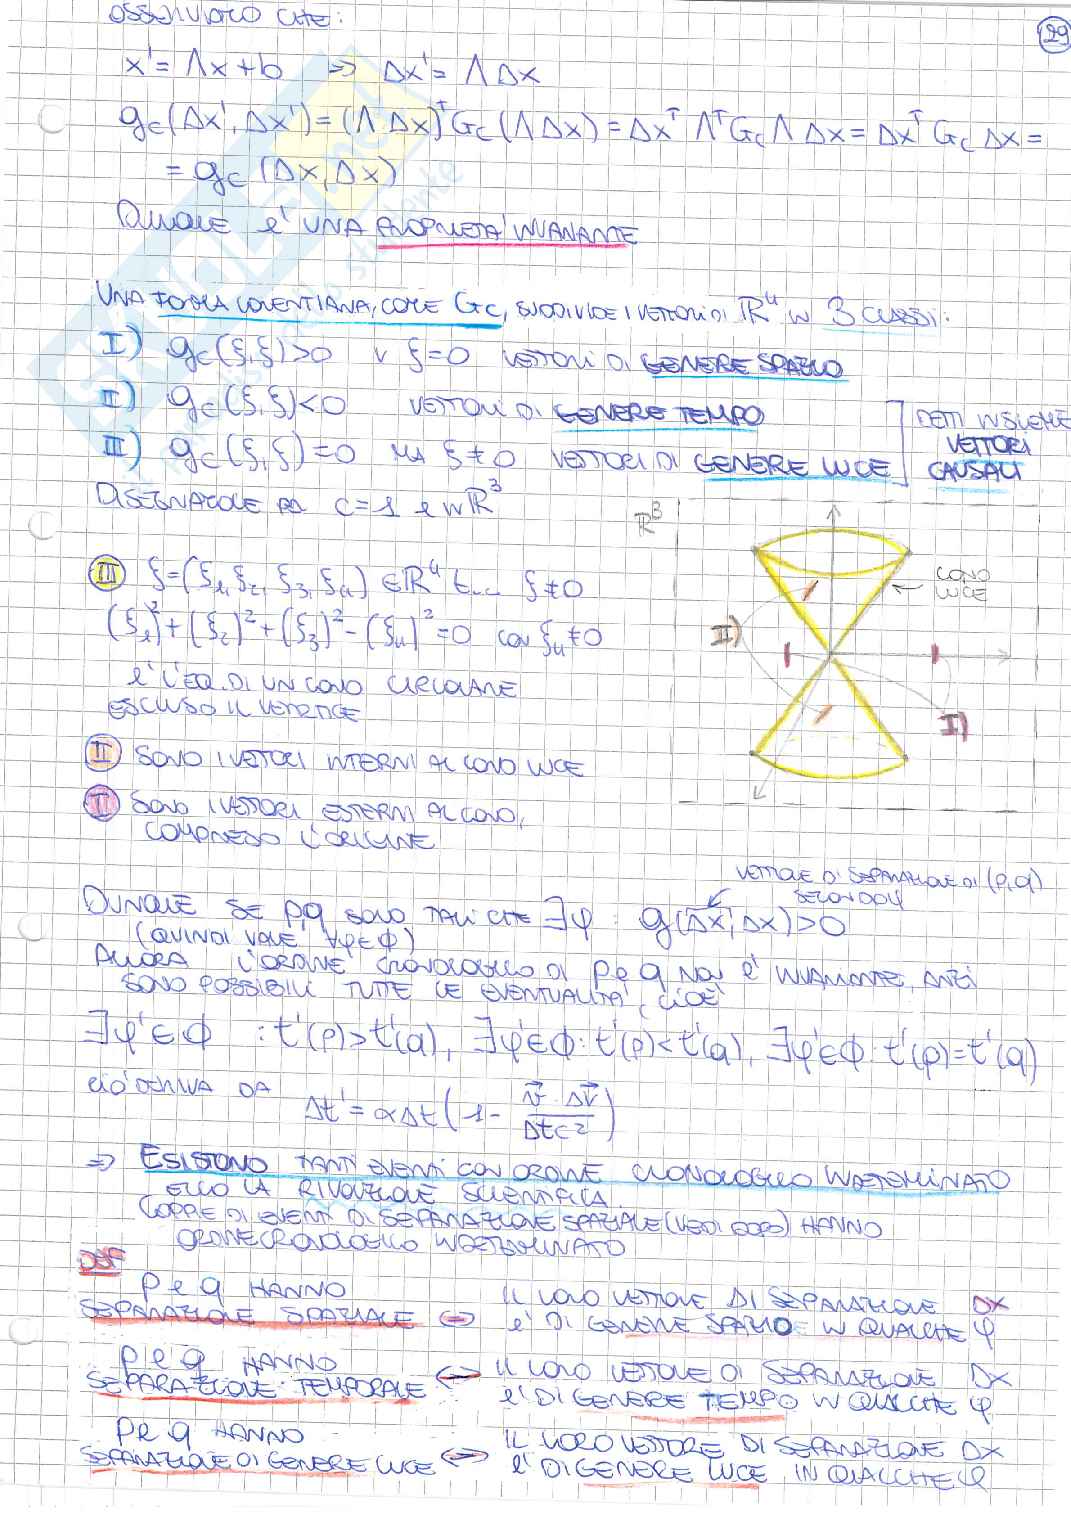 OSSERVIAMO CHE:
29
x' = Λx + b ⇒ Δx' = Λ Δx
g_C(Δx', Δx') = (Λ Δx)^T G_C (Λ Δx) = Δx^T Λ^T G_C Λ Δx = Δx^T G_C Δx =
= g_C (Δx, Δx)
DUNQUE E' UNA PROPRIETA' INVARIANTE
UNA FORMA LORENTIANA, COME G_C, SUDDIVIDE I VETTORI DI ℝ^4 IN 3 CLASSI:
I) g_C(ξ,ξ)>0 ∨ ξ=0 VETTORI DI GENERE SPAZIO
II) g_C(ξ,ξ)<0 VETTORI DI GENERE TEMPO
III) g_C(ξ,ξ)=0 MA ξ≠0 VETTORI DI GENERE LUCE
DETTI INSIEME
VETTORI
CAUSALI
DISEGNAMOLE PER C=1 E IN ℝ^3
ℝ^3
CONO
LUCE
II)
I)
III ξ=(ξ_1, ξ_2, ξ_3, ξ_4) ∈ ℝ^4 t.c. ξ≠0
(ξ_1)^2+(ξ_2)^2+(ξ_3)^2-(ξ_4)^2=0 CON ξ_4≠0
E' L'EQ. DI UN CONO CIRCOLARE
ESCLUSO IL VERTICE
II SONO I VETTORI INTERNI AL CONO LUCE
I SONO I VETTORI ESTERNI AL CONO,
COMPRESO L'ORIGINE
VETTORE DI SEPARAZIONE DI (p,q)
SECONDO φ
DUNQUE SE p,q SONO TALI CHE ∃φ : g(Δx, Δx)>0
(QUINDI VALE ∀φ∈Φ)
ALLORA L'ORDINE CRONOLOGICO DI p e q NON E' INVARIANTE, ANZI
SONO POSSIBILI TUTTE LE EVENTUALITA', CIOE'
∃φ'∈Φ : t'(p)>t'(q), ∃φ'∈Φ : t'(p)<t'(q), ∃φ'∈Φ : t'(p)=t'(q)
CIO' DERIVA DA
Δt' = αΔt (1 - v⃗ · Δv⃗ / Δtc^2)
⇒ ESISTONO TANTI EVENTI CON ORDINE CRONOLOGICO INDETERMINATO
ECCO LA RIVOLUZIONE SCIENTIFICA.
COPPIE DI EVENTI DI SEPARAZIONE SPAZIALE (VEDI DOPO) HANNO
ORDINE CRONOLOGICO INDETERMINATO
DEF
p e q HANNO
SEPARAZIONE SPAZIALE ⇔ IL LORO VETTORE DI SEPARAZIONE Δx
E' DI GENERE SPAZIO IN QUALCHE φ
p e q HANNO
SEPARAZIONE TEMPORALE ⇔ IL LORO VETTORE DI SEPARAZIONE Δx
E' DI GENERE TEMPO IN QUALCHE φ
p e q HANNO
SEPARAZIONE DI GENERE LUCE ⇔ IL LORO VETTORE DI SEPARAZIONE Δx
E' DI GENERE LUCE IN QUALCHE φ